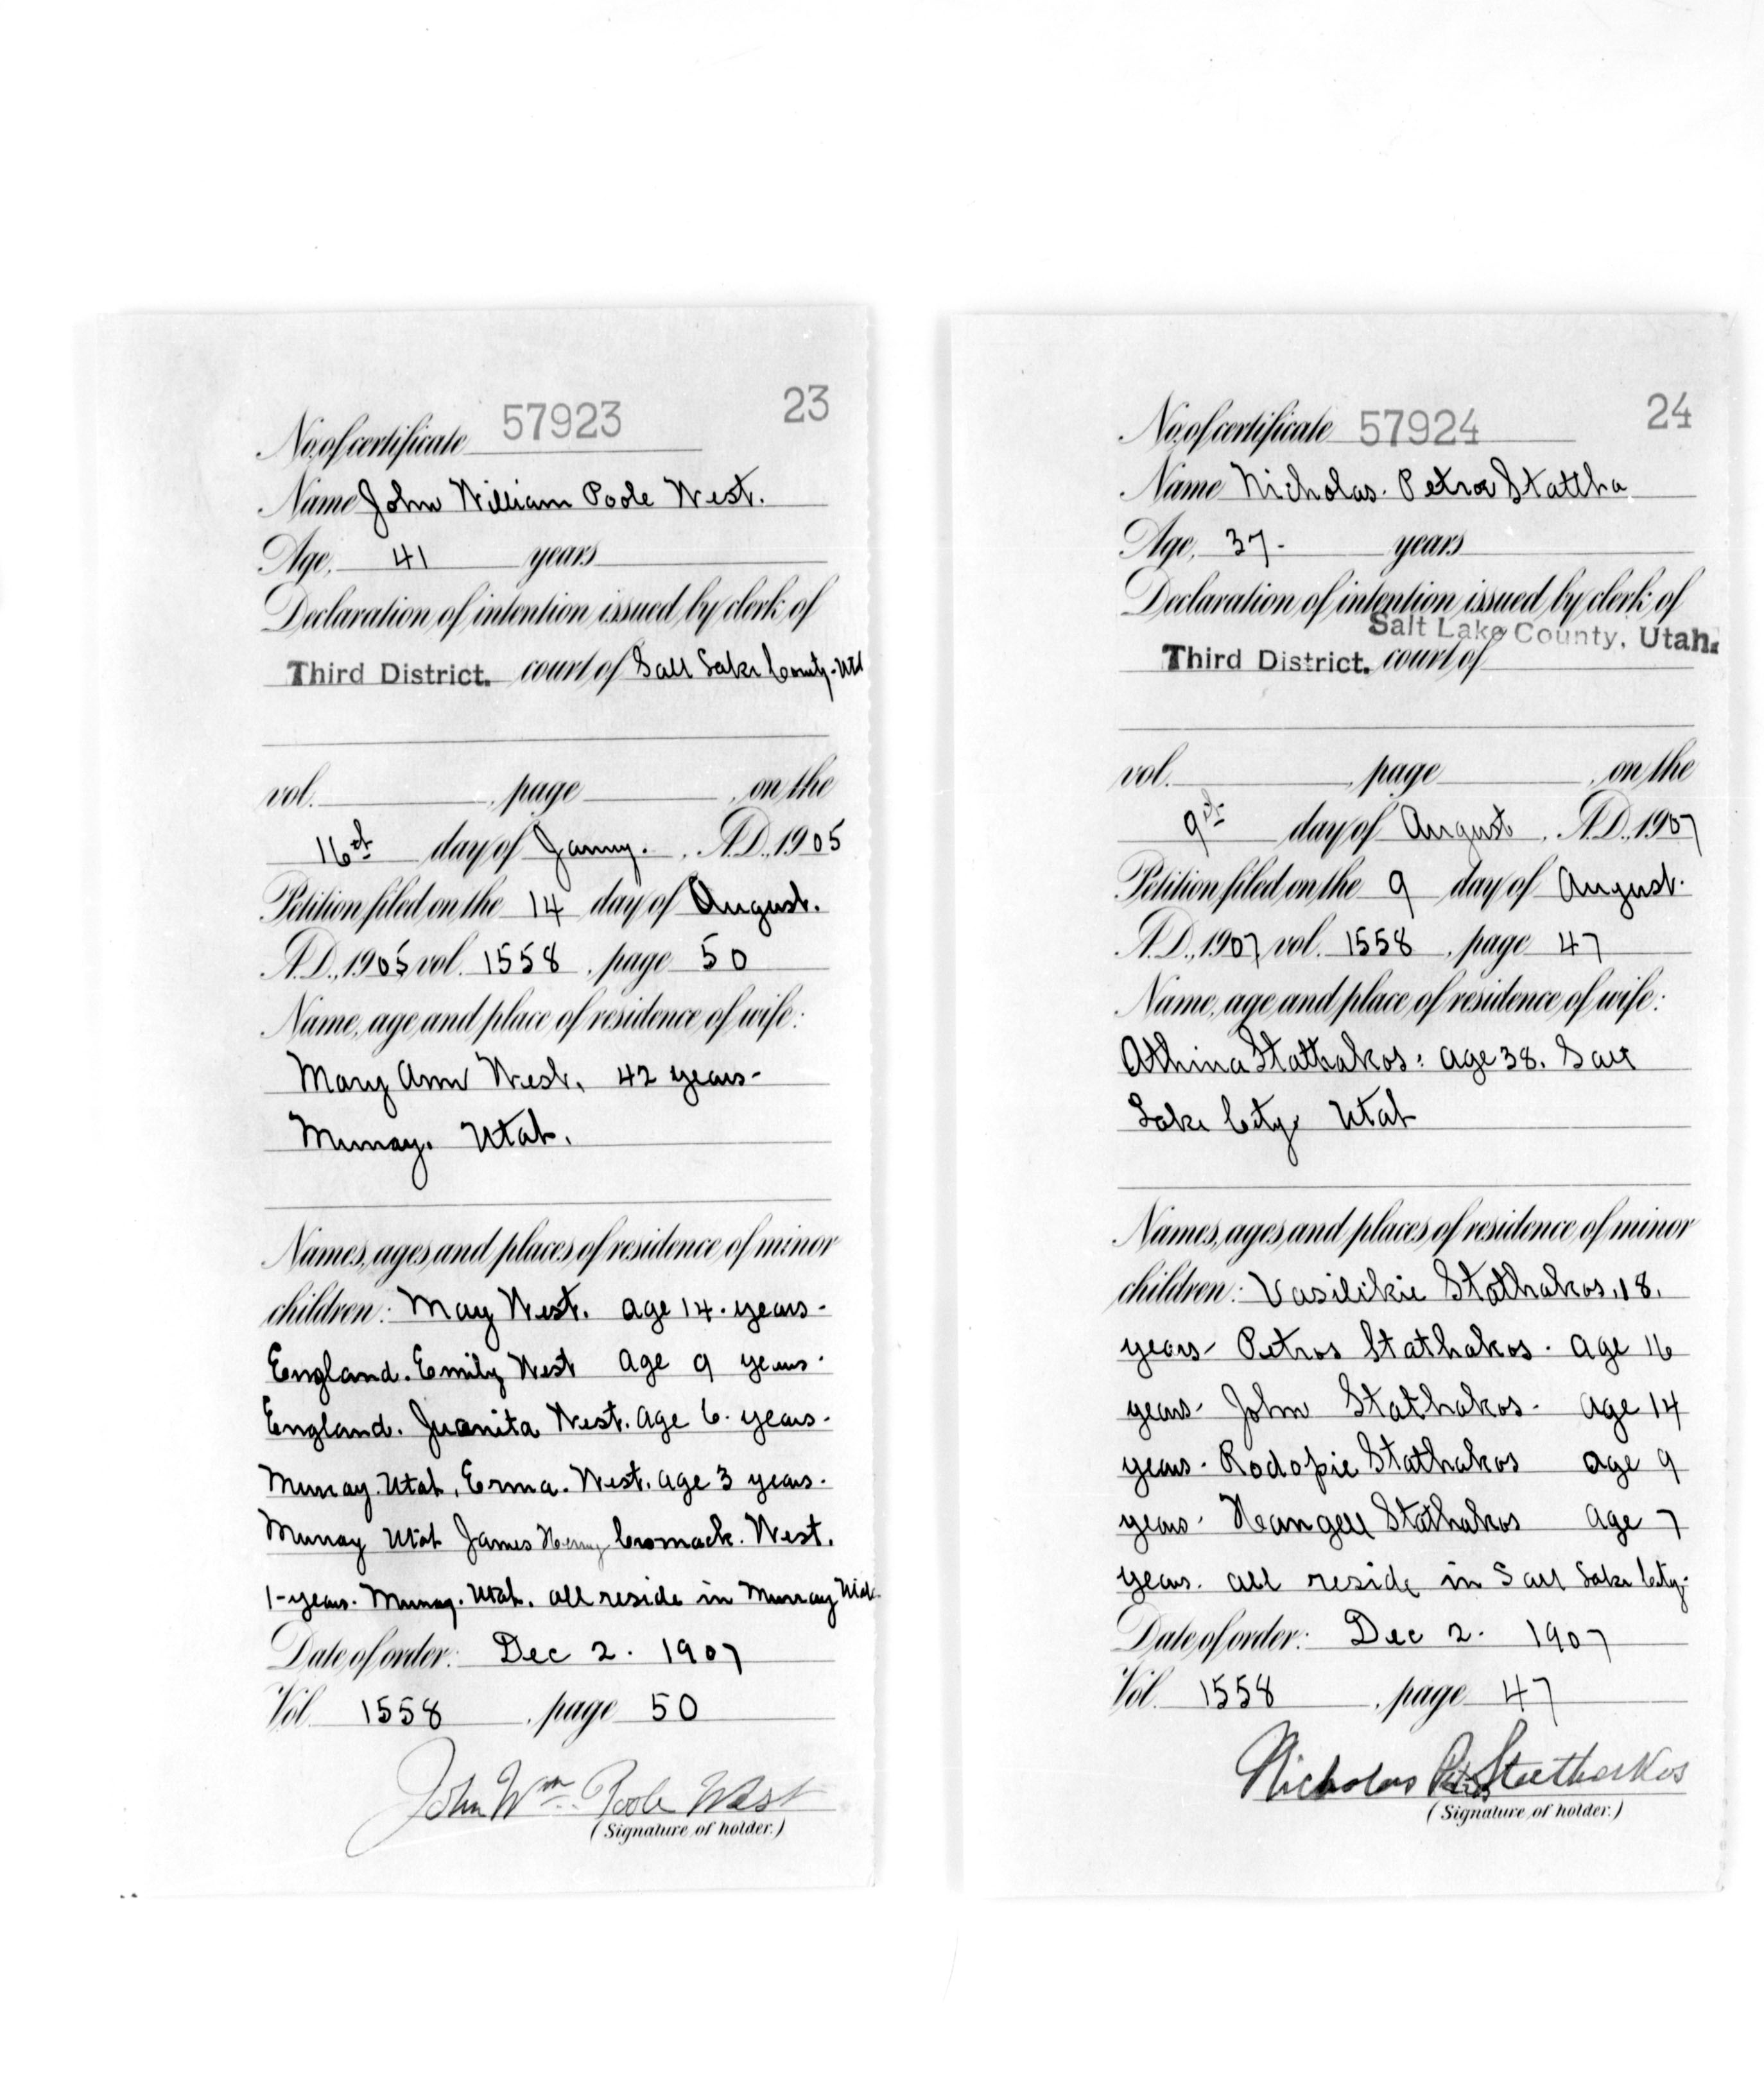 23
No. of certificate 57923
Name John William Poole West.
Age, 41 years
Declaration of intention issued by clerk of
Third District. court of Salt Lake County - Utah
vol. , page , on the
16th day of Janny. , A.D., 1905
Petition filed on the 14 day of August.
A.D., 1905, vol. 1558 , page 50
Name, age and place of residence of wife:
Mary Ann West. 42 years-
Murray. Utah.
Names, ages and places of residence of minor
children: May West. age 14. years-
England. Emily West age 9 years.
England. Juanita West. age 6. years.
Murray. Utah. Erma. West. age 3 years.
Murray Utah James Henry Cromack. West.
1-years. Murray. Utah. all reside in Murray Utah.
Date of order: Dec 2. 1907
Vol. 1558 , page 50
John Wm. Poole West
(Signature of holder.)
24
No. of certificate 57924
Name Nicholas. Petros Stattha
Age, 37. years
Declaration of intention issued by clerk of
Salt Lake County, Utah.
Third District. court of
vol. , page , on the
9th day of August , A.D., 1907
Petition filed on the 9 day of August.
A.D., 1907, vol. 1558 , page 47
Name, age and place of residence of wife:
Athina Stathakos: age 38. Salt
Lake City, Utah
Names, ages and places of residence of minor
children: Vasilikie Stathakos, 18.
years- Petros Stathakos. age 16
years- John Stathakos- age 14
years- Rodopie Stathakos age 9
years- Stathakos age 7
years. all reside in Salt Lake City-
Date of order: Dec 2. 1907
Vol. 1558 , page 47
Nicholas Stathakos
(Signature of holder.)